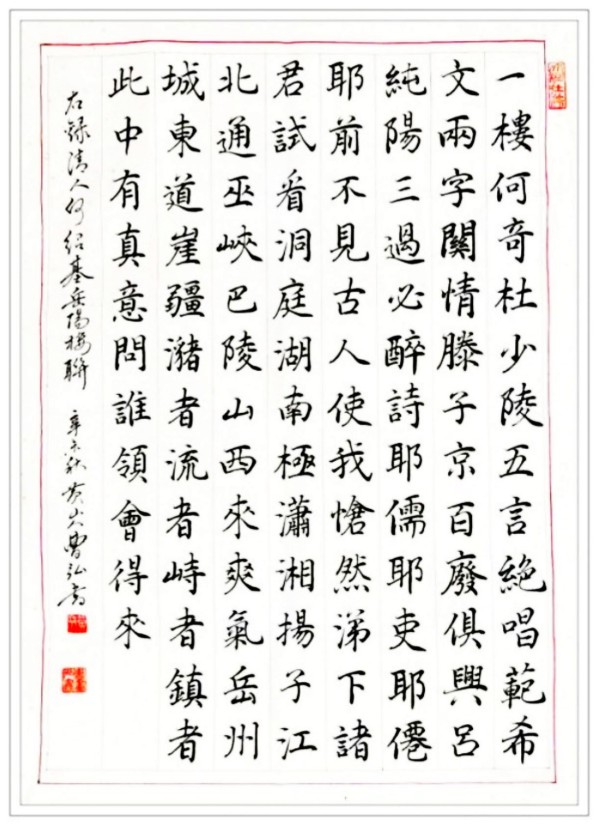 一樓何奇杜少陵五言絶唱範希
文兩字關情滕子京百廢俱興呂
純陽三過必醉詩耶儒耶吏耶僊
耶前不見古人使我愴然涕下諸
君試看洞庭湖南極瀟湘揚子江
北通巫峽巴陵山西來爽氣岳州
城東道崖疆瀦者流者峙者鎮者
此中有真意問誰領會得來
右録清人何紹基岳陽樓聯 辛未秋 黄山曹弘書